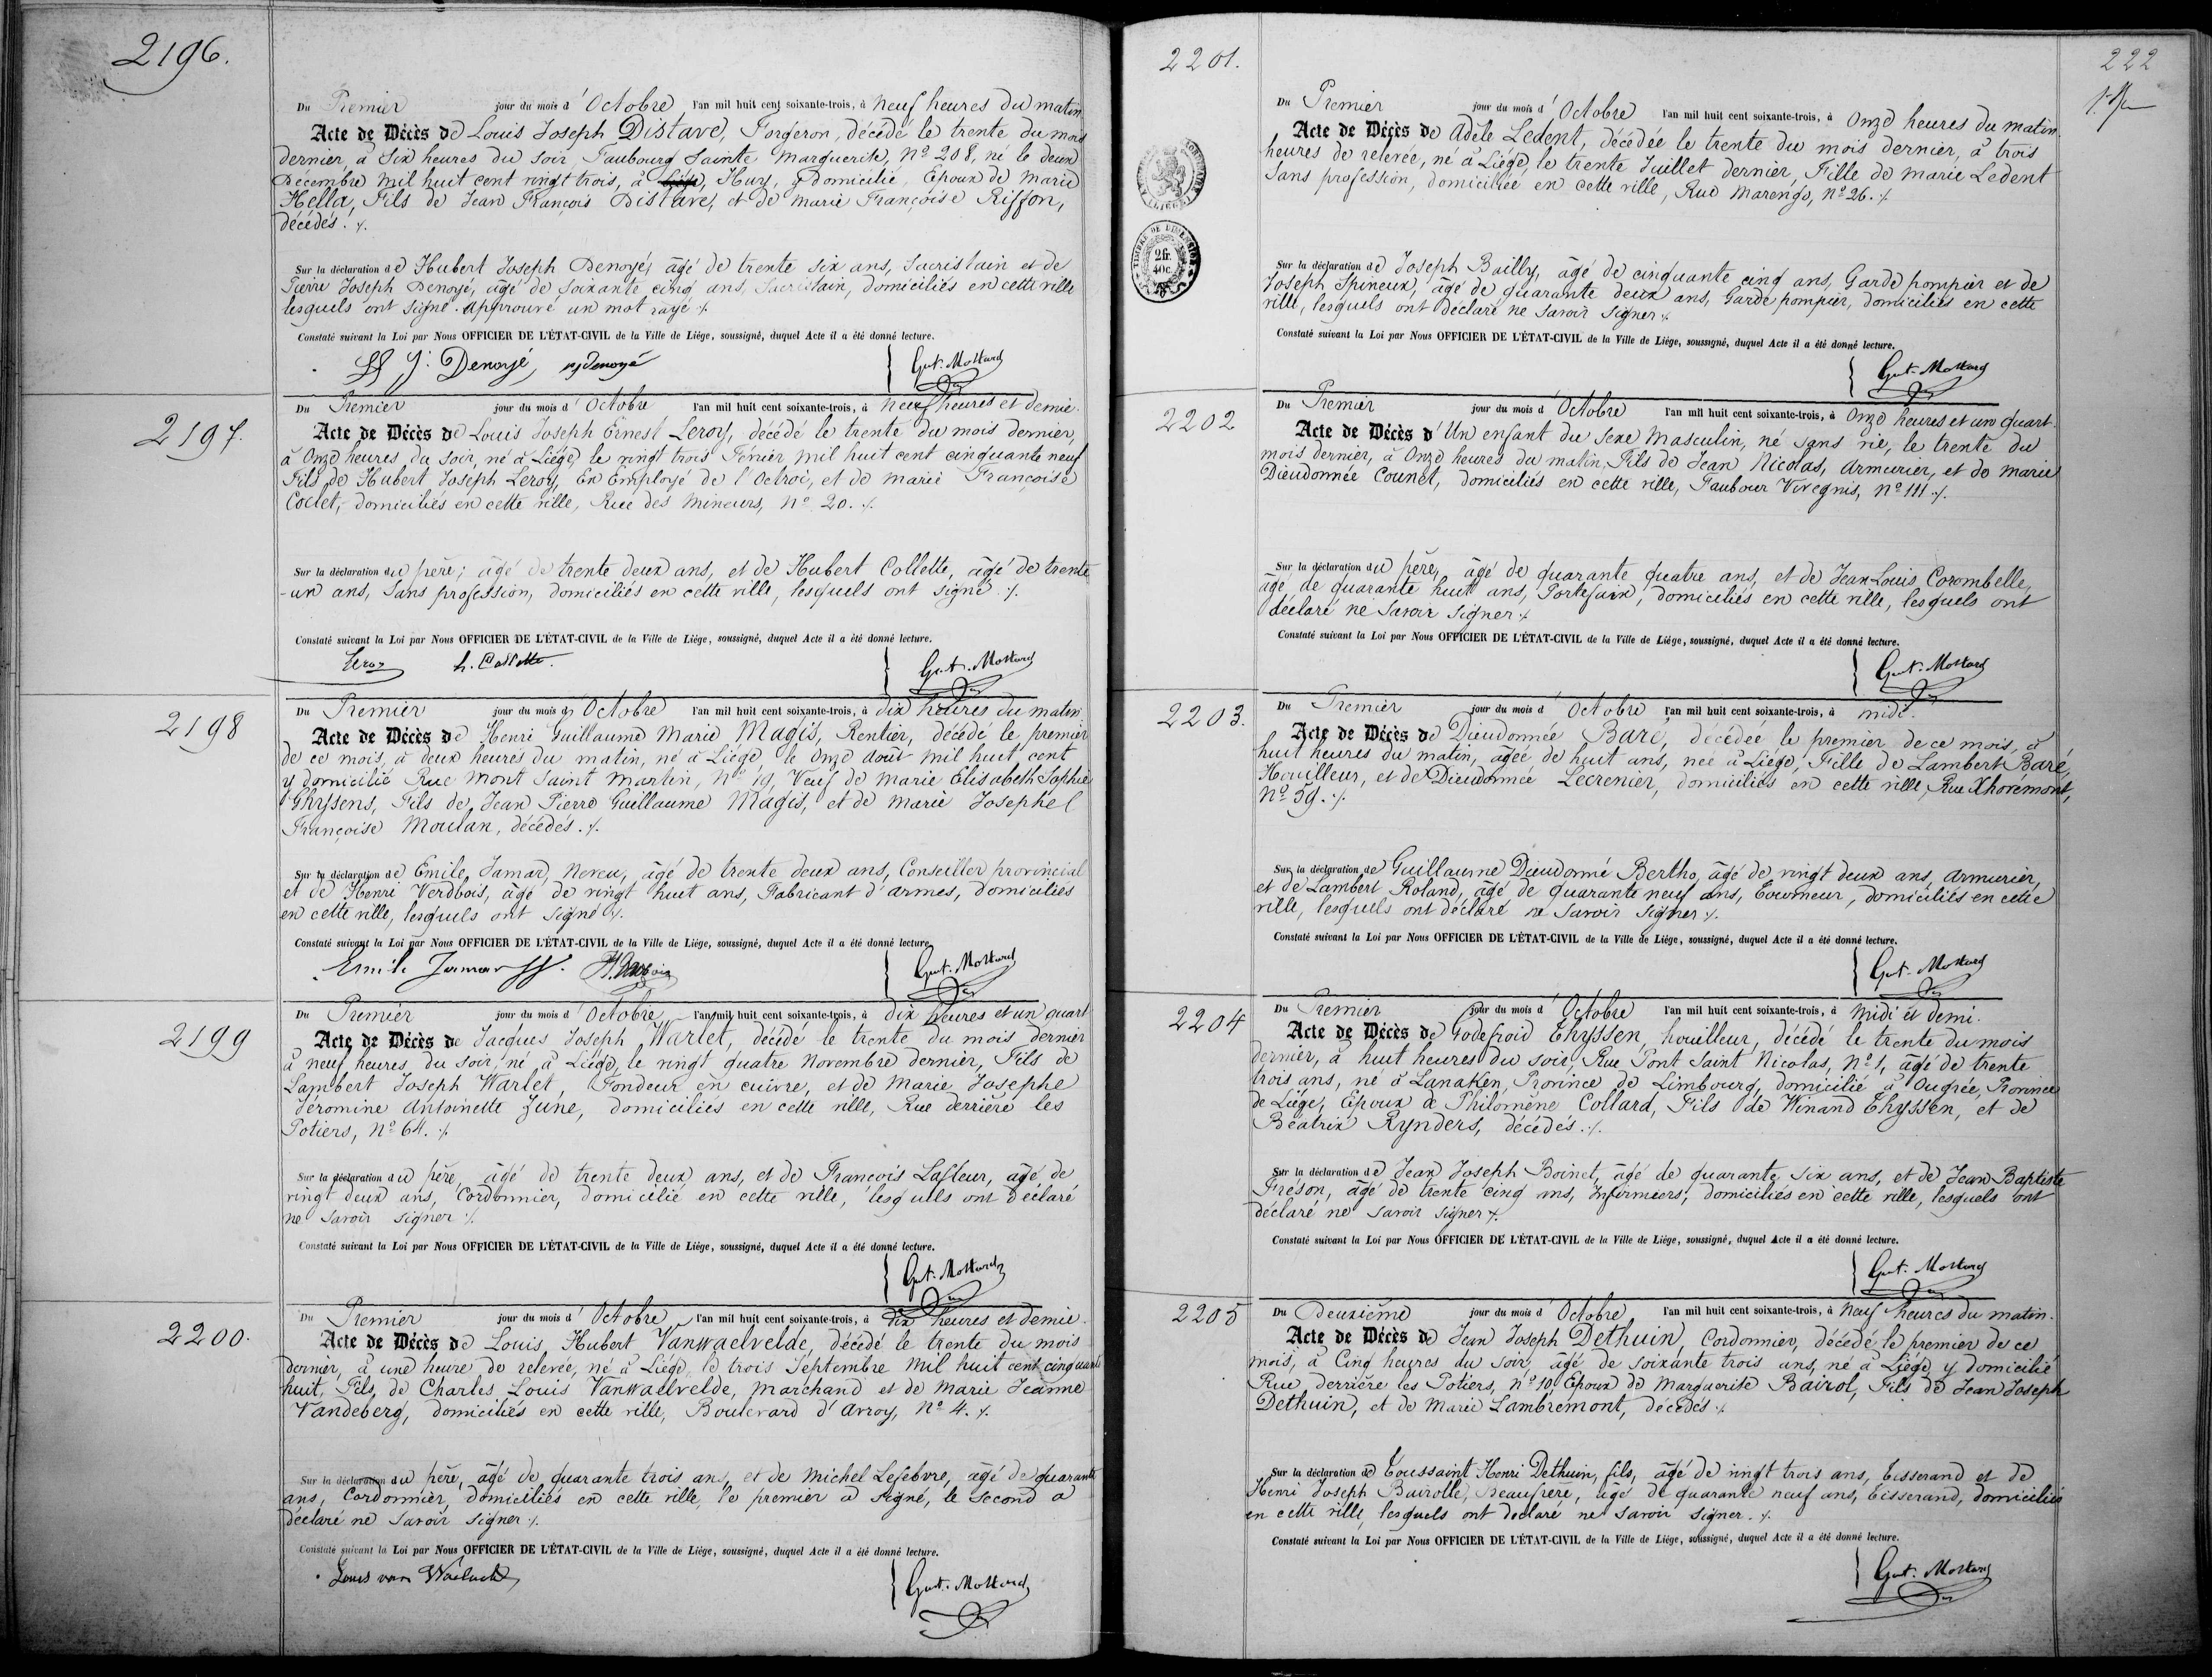 2196.
Du Premier jour du mois d'Octobre l'an mil huit cent soixante-trois, à neuf heures du matin
Acte de Décès de Louis Joseph Distave, Forgeron, décédé le trente du mois
dernier, à Six heures du soir, Faubourg Sainte Marguerite, Nº 208, né le deux
Décembre mil huit cent vingt trois, à Huy, y domicilié, Epoux de Marie
Hella, Fils de Jean François Distave, et de Marie Françoise Riffon,
décédés ./.
Sur la déclaration de Hubert Joseph Denoyé, âgé de trente six ans, Sacristain et de
Pierre Joseph Denoyé, âgé de soixante cinq ans, Sacristain, domiciliés en cette ville
lesquels ont signé. approuvé un mot rayé ./.
Constaté suivant la Loi par Nous OFFICIER DE L'ÉTAT-CIVIL de la Ville de Liége, soussigné, duquel Acte il a été donné lecture.
H J. Denoyé, pj Denoyé Gust. Mottard
2197.
Du Premier jour du mois d'Octobre l'an mil huit cent soixante-trois, à neuf heures et demie.
Acte de Décès de Louis Joseph Ernest Leroy, décédé le trente du mois dernier,
à Onze heures du soir, né à Liége, le vingt trois Fevrier mil huit cent cinquante neuf
Fils de Hubert Joseph Leroy, Ex Employé de l'Octroi, et de marie Françoise
Coclet, domiciliés en cette ville, Rue des Mineurs, Nº 20. ./.
Sur la déclaration du père, âgé de trente deux ans, et de Hubert Collette, âgé de trente
-un ans, Sans profession, domiciliés en cette ville, lesquels ont signé ./.
Constaté suivant la Loi par Nous OFFICIER DE L'ÉTAT-CIVIL de la Ville de Liége, soussigné, duquel Acte il a été donné lecture.
Leroy h. Collette. Gust. Mottard
2198
Du Premier jour du mois d'Octobre l'an mil huit cent soixante-trois, à dix heures du matin
Acte de Décès de Henri Guillaume Marie Magis, Rentier, décédé le premier
de ce mois, à deux heures du matin, né à Liége, le onze août mil huit cent
y domicilié Rue Mont Saint Martin, Nº 19, Veuf de Marie Elisabeth Sophie
Ghysens, Fils de Jean Pierre Guillaume Magis, et de Marie Josephe
Françoise Moulan, décédés ./.
Sur la déclaration de Emile Jamar, Neveu, âgé de trente deux ans, Conseiller provincial
et de Henri Verdbois, âgé de vingt huit ans, Fabricant d'armes, domiciliés
en cette ville, lesquels ont signé ./.
Constaté suivant la Loi par Nous OFFICIER DE L'ÉTAT-CIVIL de la Ville de Liége, soussigné, duquel Acte il a été donné lecture.
Emile Jamar Gust. Mottard
2199
Du Premier jour du mois d'Octobre l'an mil huit cent soixante-trois, à dix heures et un quart
Acte de Décès de Jacques Joseph Warlet, décédé le trente du mois dernier
à neuf heures du soir, né à Liége, le vingt quatre Novembre dernier, Fils de
Lambert Joseph Warlet, Fondeur en cuivre, et de Marie Josephe
Jéromine Antoinette Júne, domiciliés en cette ville, Rue derrière les
Potiers, Nº 64. ./.
Sur la déclaration du père, âgé de trente deux ans, et de François Lafleur, âgé de
vingt deux ans, Cordonnier, domicilié en cette ville, lesquels ont déclaré
ne savoir signer ./.
Constaté suivant la Loi par Nous OFFICIER DE L'ÉTAT-CIVIL de la Ville de Liége, soussigné, duquel Acte il a été donné lecture.
Gust. Mottard
2200.
Du Premier jour du mois d'Octobre l'an mil huit cent soixante-trois, à dix heures et demie.
Acte de Décès de Louis Hubert Vanwaelvelde, décédé le trente du mois
dernier, à une heure de relevée, né à Liége, le trois Septembre mil huit cent cinquante
huit, Fils, de Charles Louis Vanwaelvelde, marchand et de Marie Jeanne
Vandeberg, domiciliés en cette ville, Boulevard d'Avroy, Nº 4. ./.
Sur la déclaration du père, âgé de quarante trois ans, et de Michel Lefebvre, âgé de quarante
ans, Cordonnier, domiciliés en cette ville, le premier a signé, le second a
déclaré ne savoir signer ./.
Constaté suivant la Loi par Nous OFFICIER DE L'ÉTAT-CIVIL de la Ville de Liége, soussigné, duquel Acte il a été donné lecture.
Louis van Gust. Mottard
222
2201.
TIMBRE DE DIMENSION
2 fr.
40 c.
Du Premier jour du mois d'Octobre l'an mil huit cent soixante-trois, à Onze heures du matin.
Acte de Décès de Adèle Ledent, décédée le trente du mois dernier, à trois
heures de relevée, né à Liége, le trente Juillet dernier, Fille de marie Ledent
Sans profession, domiciliée en cette ville, Rue Marengo, Nº 26. ./.
Sur la déclaration de Joseph Bailly, âgé de cinquante cinq ans, Garde pompier et de
Joseph Spineux, âgé de quarante deux ans, Garde pompier, domiciliés en cette
ville, lesquels ont déclaré ne savoir signer ./.
Constaté suivant la Loi par Nous OFFICIER DE L'ÉTAT-CIVIL de la Ville de Liége, soussigné, duquel Acte il a été donné lecture.
Gust. Mottard
2202
Du Premier jour du mois d'Octobre l'an mil huit cent soixante-trois, à Onze heures et un quart
Acte de Décès d'Un enfant du sexe Masculin, né sans vie, le trente du
mois dernier, à Onze heures du matin, Fils de Jean Nicolas, Armurier, et de Marie
Dieudonnée Counet, domiciliés en cette ville, Faubour Vivegnis, Nº 111 ./.
Sur la déclaration du père, âgé de quarante quatre ans, et de Jean Louis Corombelle,
âgé de quarante huit ans, Portefaix, domiciliés en cette ville, lesquels ont
déclaré ne savoir signer ./.
Constaté suivant la Loi par Nous OFFICIER DE L'ÉTAT-CIVIL de la Ville de Liége, soussigné, duquel Acte il a été donné lecture.
Gust. Mottard
2203.
Du Premier jour du mois d'Octobre l'an mil huit cent soixante-trois, à midi.
Acte de Décès de Dieudonnée Baré, décédée le premier de ce mois, à
huit heures du matin, âgée de huit ans, née à Liége, Fille de Lambert Baré,
Houilleur, et de Dieudonnée Lecrenier, domiciliés en cette ville, Rue Xhorémont,
Nº 59. ./.
Sur la déclaration de Guillaume Dieudonné Bertho, âgé de vingt deux ans, armurier,
et de Lambert Roland, âgé de quarante neuf ans, Tourneur, domiciliés en cette
ville, lesquels ont déclaré ne savoir signer ./.
Constaté suivant la Loi par Nous OFFICIER DE L'ÉTAT-CIVIL de la Ville de Liége, soussigné, duquel Acte il a été donné lecture.
Gust. Mottard
2204
Du Premier jour du mois d'Octobre l'an mil huit cent soixante-trois, à Midi et demi.
Acte de Décès de Godefroid Thyssen, houilleur, décédé le trente du mois
dernier, à huit heures du soir, Rue Pont Saint Nicolas, Nº 1, âgé de trente
trois ans, né à Lanaken, Province de Limbourg, domicilié à Ougrée, Province
de Liége, Epoux de Philomène Collard, Fils de Winand Thyssen, et de
Béatrix Rynders, décédés ./.
Sur la déclaration de Jean Joseph Boinet, âgé de quarante six ans, et de Jean Baptiste
Fréson, âgé de trente cinq ans, Infirmiers, domiciliés en cette ville, lesquels ont
déclaré ne savoir signer ./.
Constaté suivant la Loi par Nous OFFICIER DE L'ÉTAT-CIVIL de la Ville de Liége, soussigné, duquel Acte il a été donné lecture.
Gust. Mottard
2205
Du Deuxième jour du mois d'Octobre l'an mil huit cent soixante-trois, à neuf heures du matin.
Acte de Décès de Jean Joseph Dethuin, Cordonnier, décédé le premier de ce
mois, à Cinq heures du soir, âgé de soixante trois ans, né à Liége, y domicilié
Rue derrière les Potiers, nº 10, Epoux de Marguerite Bairol, Fils de Jean Joseph
Dethuin, et de Marie Lambremont, décédés ./.
Sur la déclaration de Toussaint Henri Dethuin, fils, âgé de vingt trois ans, Tisserand et de
Henri Joseph Bairolle, Beaufrère, âgé de quarante neuf ans, Tisserand, domiciliés
en cette ville, lesquels ont declaré ne savoir signer. ./.
Constaté suivant la Loi par Nous OFFICIER DE L'ÉTAT-CIVIL de la Ville de Liége, soussigné, duquel Acte il a été donné lecture.
Gust. Mottard